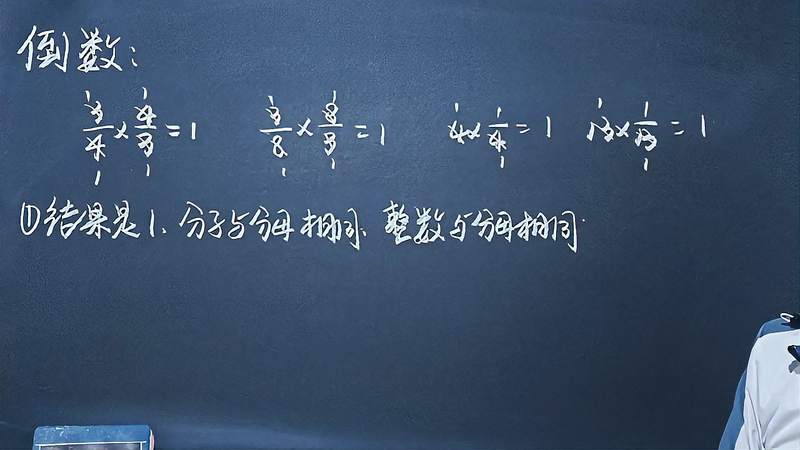 倒数：
3/4 × 4/3 = 1   3/8 × 8/3 = 1   4 × 1/4 = 1   13 × 1/13 = 1
①结果是1、分子与分母相同、整数与分母相同